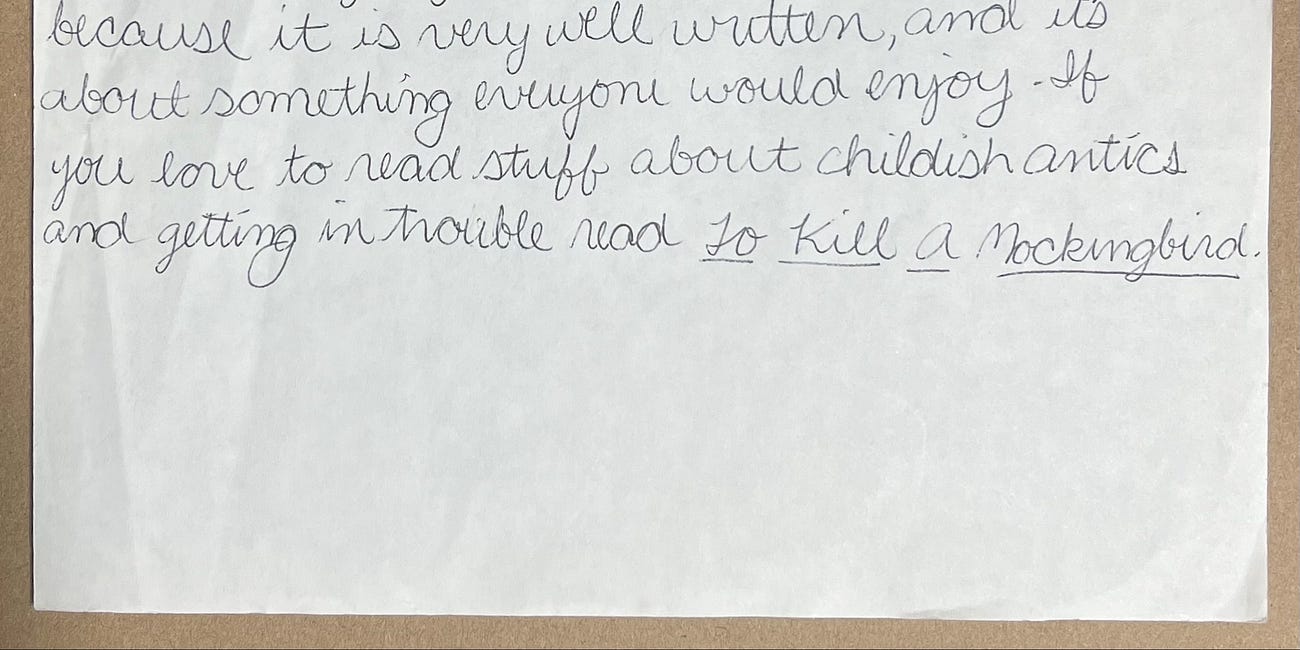 because it is very well written, and it's
about something everyone would enjoy. If
you love to read stuff about childish antics
and getting in trouble read To Kill A Mockingbird.